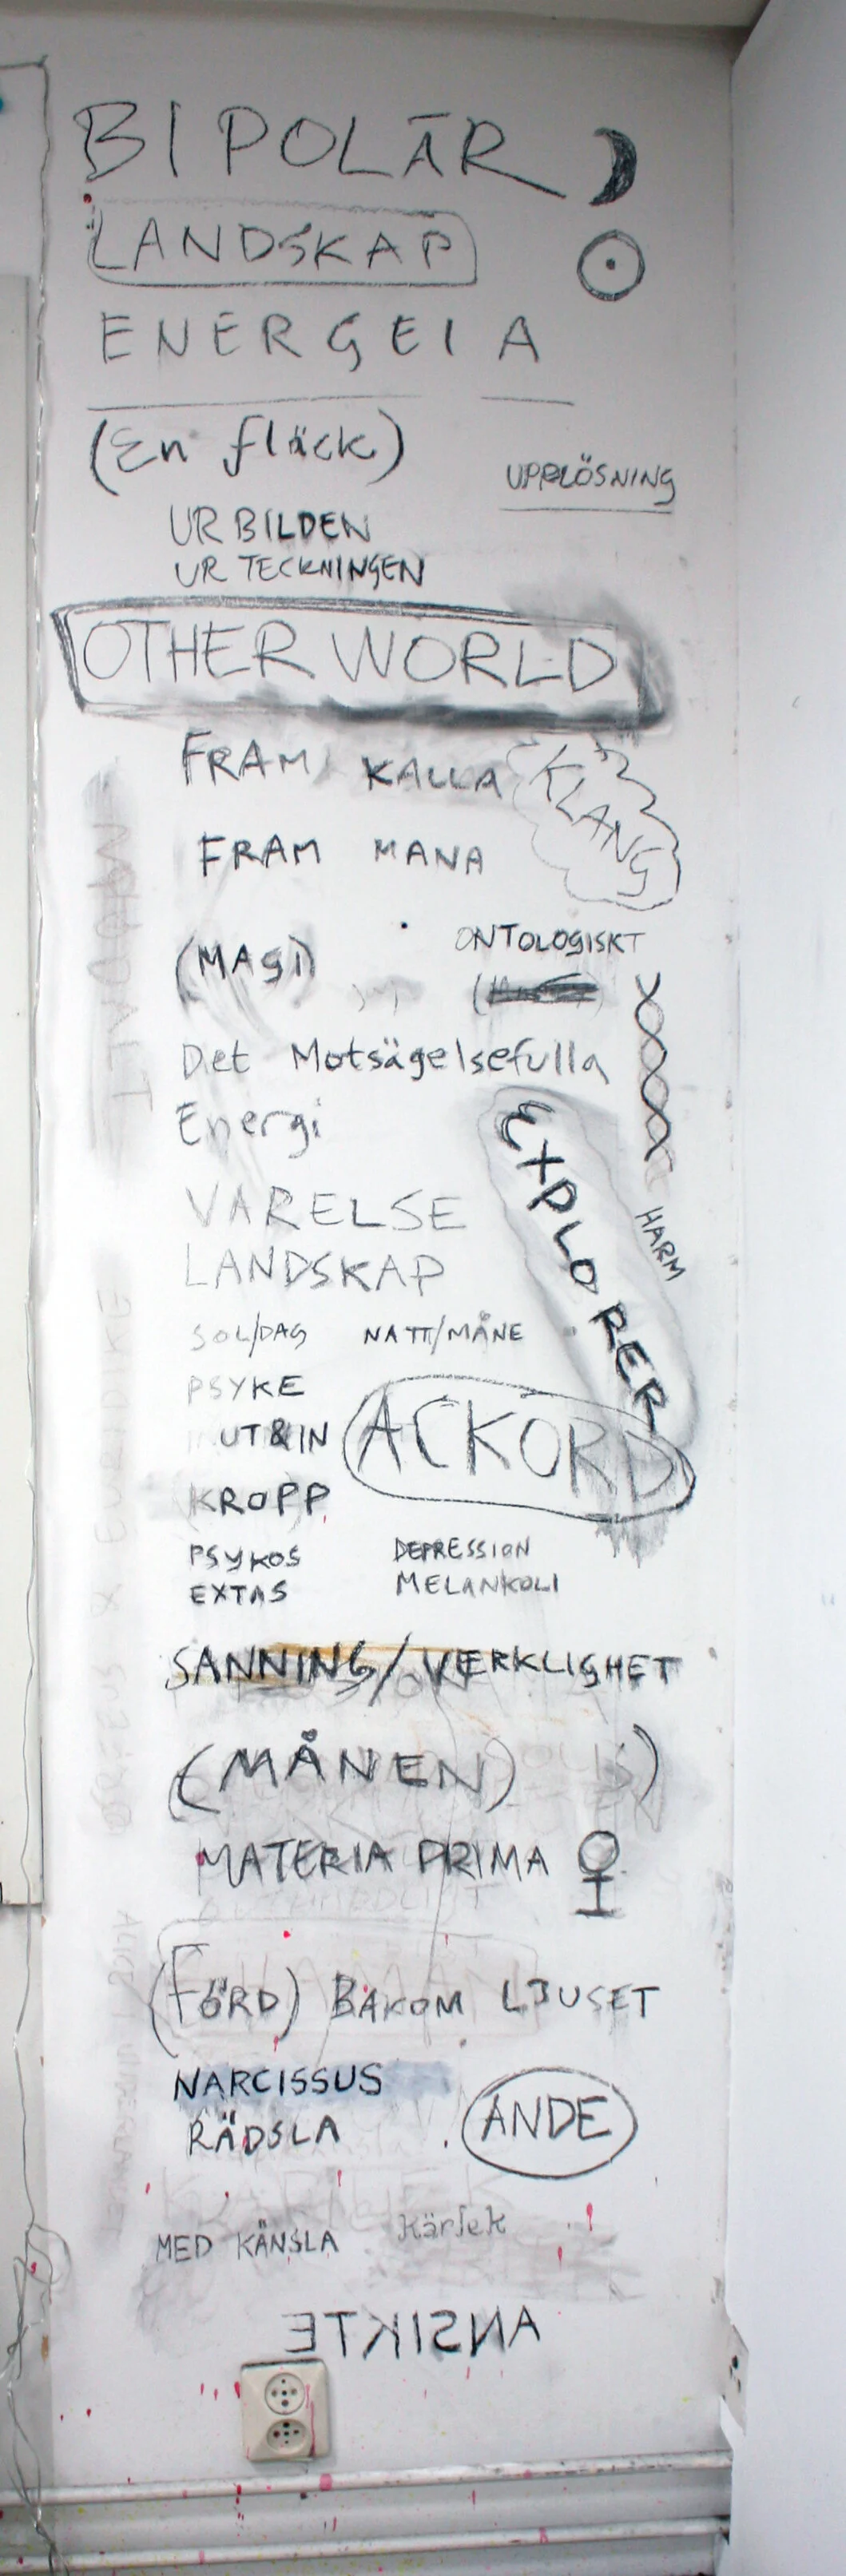 BIPOLÄR
LANDSKAP
ENERGEIA
(En fläck)
UPPLÖSNING
UR BILDEN
UR TECKNINGEN
OTHER WORLD
FRAM KALLA
KLANG
FRAM MANA
(MAGI)
ONTOLOGISKT
Det Motsägelsefulla
Energi
EXPLORER
HARM
VARELSE
LANDSKAP
SOL/DAG NATT/MÅNE
PSYKE
UT&IN
ACKORD
KROPP
PSYKOS DEPRESSION
EXTAS MELANKOLI
SANNING/VERKLIGHET
(MÅNEN)
MATERIA PRIMA
(FÖRD) BAKOM LJUSET
NARCISSUS
RÄDSLA
ANDE
MED KÄNSLA
kärlek
ANSIKTE
ORFEUS & EURIDIKE